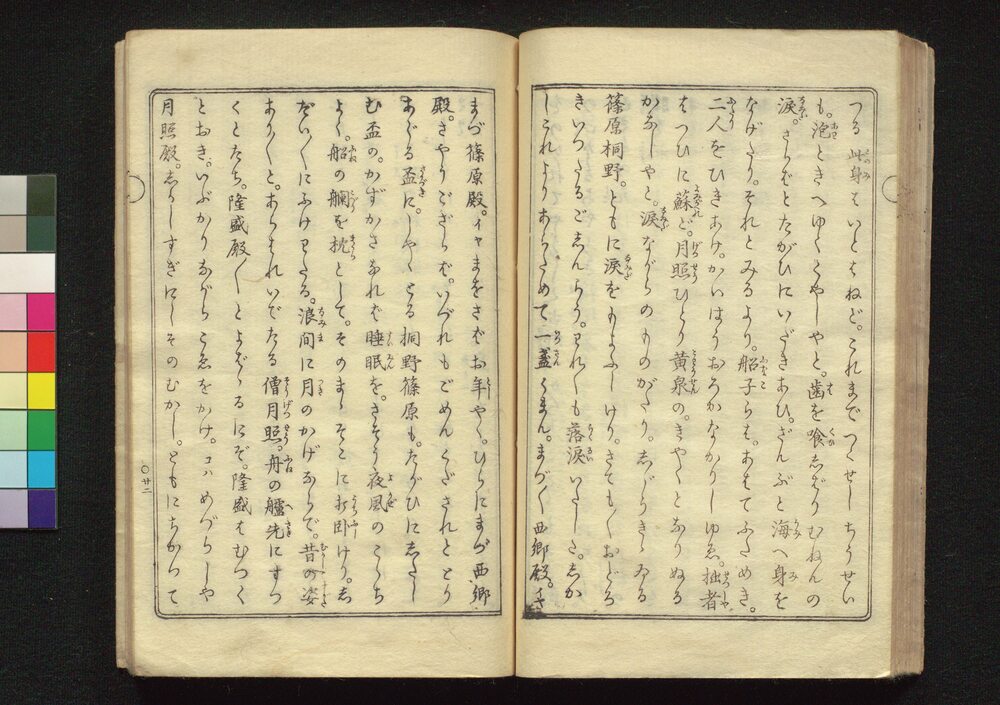 つる此身はいとはねど。これまでつくせしちうせい
も。泡ときへゆくくやしやと。歯を喰しばりむねんの
涙。さらばとたがひにいだきあひ。ざんぶと海へ身を
なげたり。それとみるより。船子らも。あはてふためき。
二人をひきあげ。かいはうおろかなかりしゆゑ。拙者
はつひに蘇ど。月照ひとり黄泉の。きやくとなりぬる
かなしやと。涙ながらのものがたり。しばらきゝゐる
篠原桐野。ともに涙をもよふしけり。さても〳〵おどろ
きいつたるごしんちう。われ〳〵も落涙いたした。しか
しこれよりあらためて一盞くまん。まづ〳〵西郷殿。イザ
まづ篠原殿。イヤまをさばお年やく。ひらにまづ西郷
殿。さやうござらば。いづれもごめんくだされととり
あぐる盃に。しやくとる桐野篠原も。たがひにしたし
む盃の。かずかさなれば睡眠を。さそう夜風のこゝち
よく。船の艫を枕として。そのまゝそこに打卧けり。し
だい〳〵にふけわたる。浪間に月のかげならで。昔の姿
あり〳〵と。あらはれいでたる僧月照。舟の艫先にすつ
くとたち。隆盛殿〳〵とよばゝるにぞ。隆盛はむつく
とおき。いぶかりながらこゑをかけ。コハめづらしや
月照殿。しうしすぎにしそのむかし。ともにちかつて
〇廿二